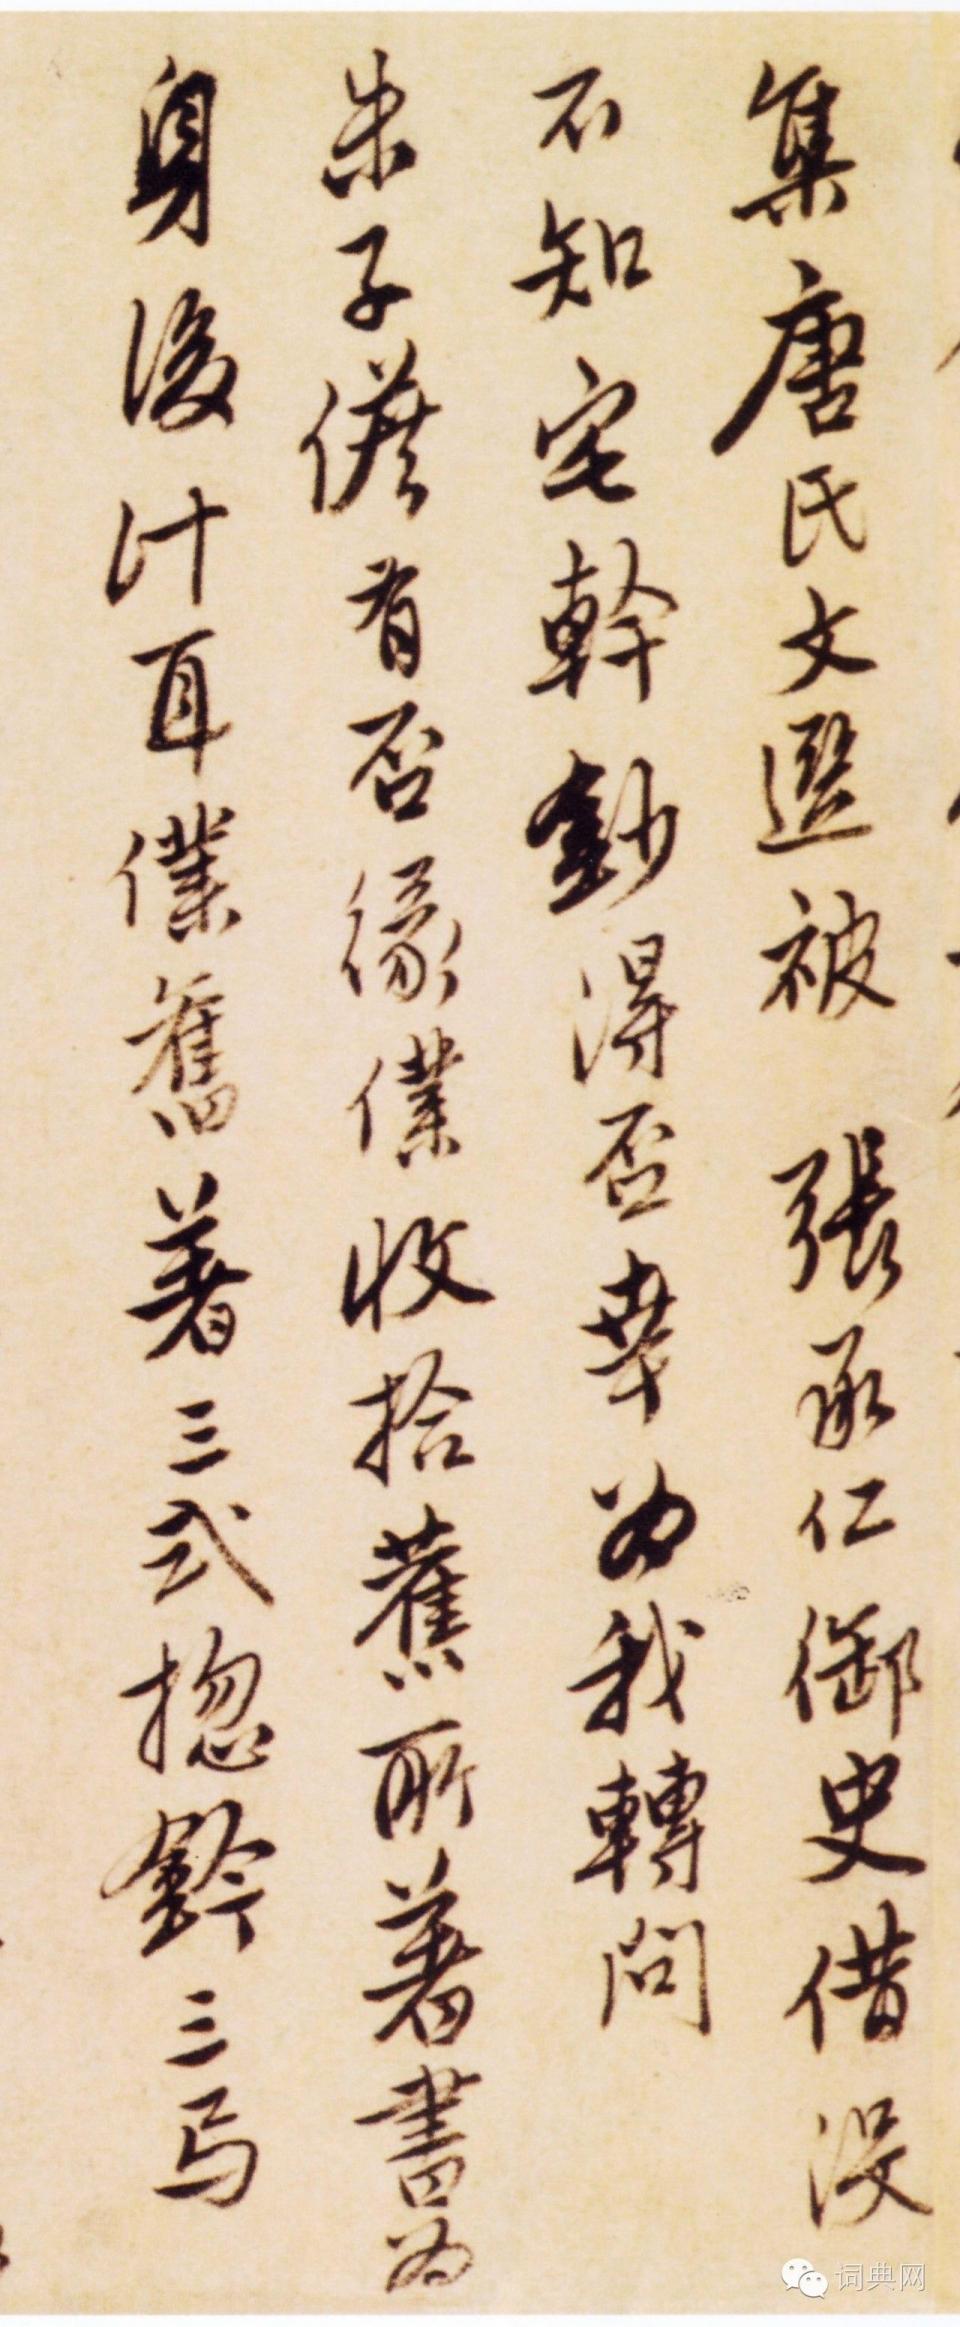 集唐氏文選被 張承仁御史借沒
不知宅幹鈔得否幸為我轉問
朱子儋有否緣僕收拾舊所著書為
身後計耳僕舊著三式揔鈐三写
词典网